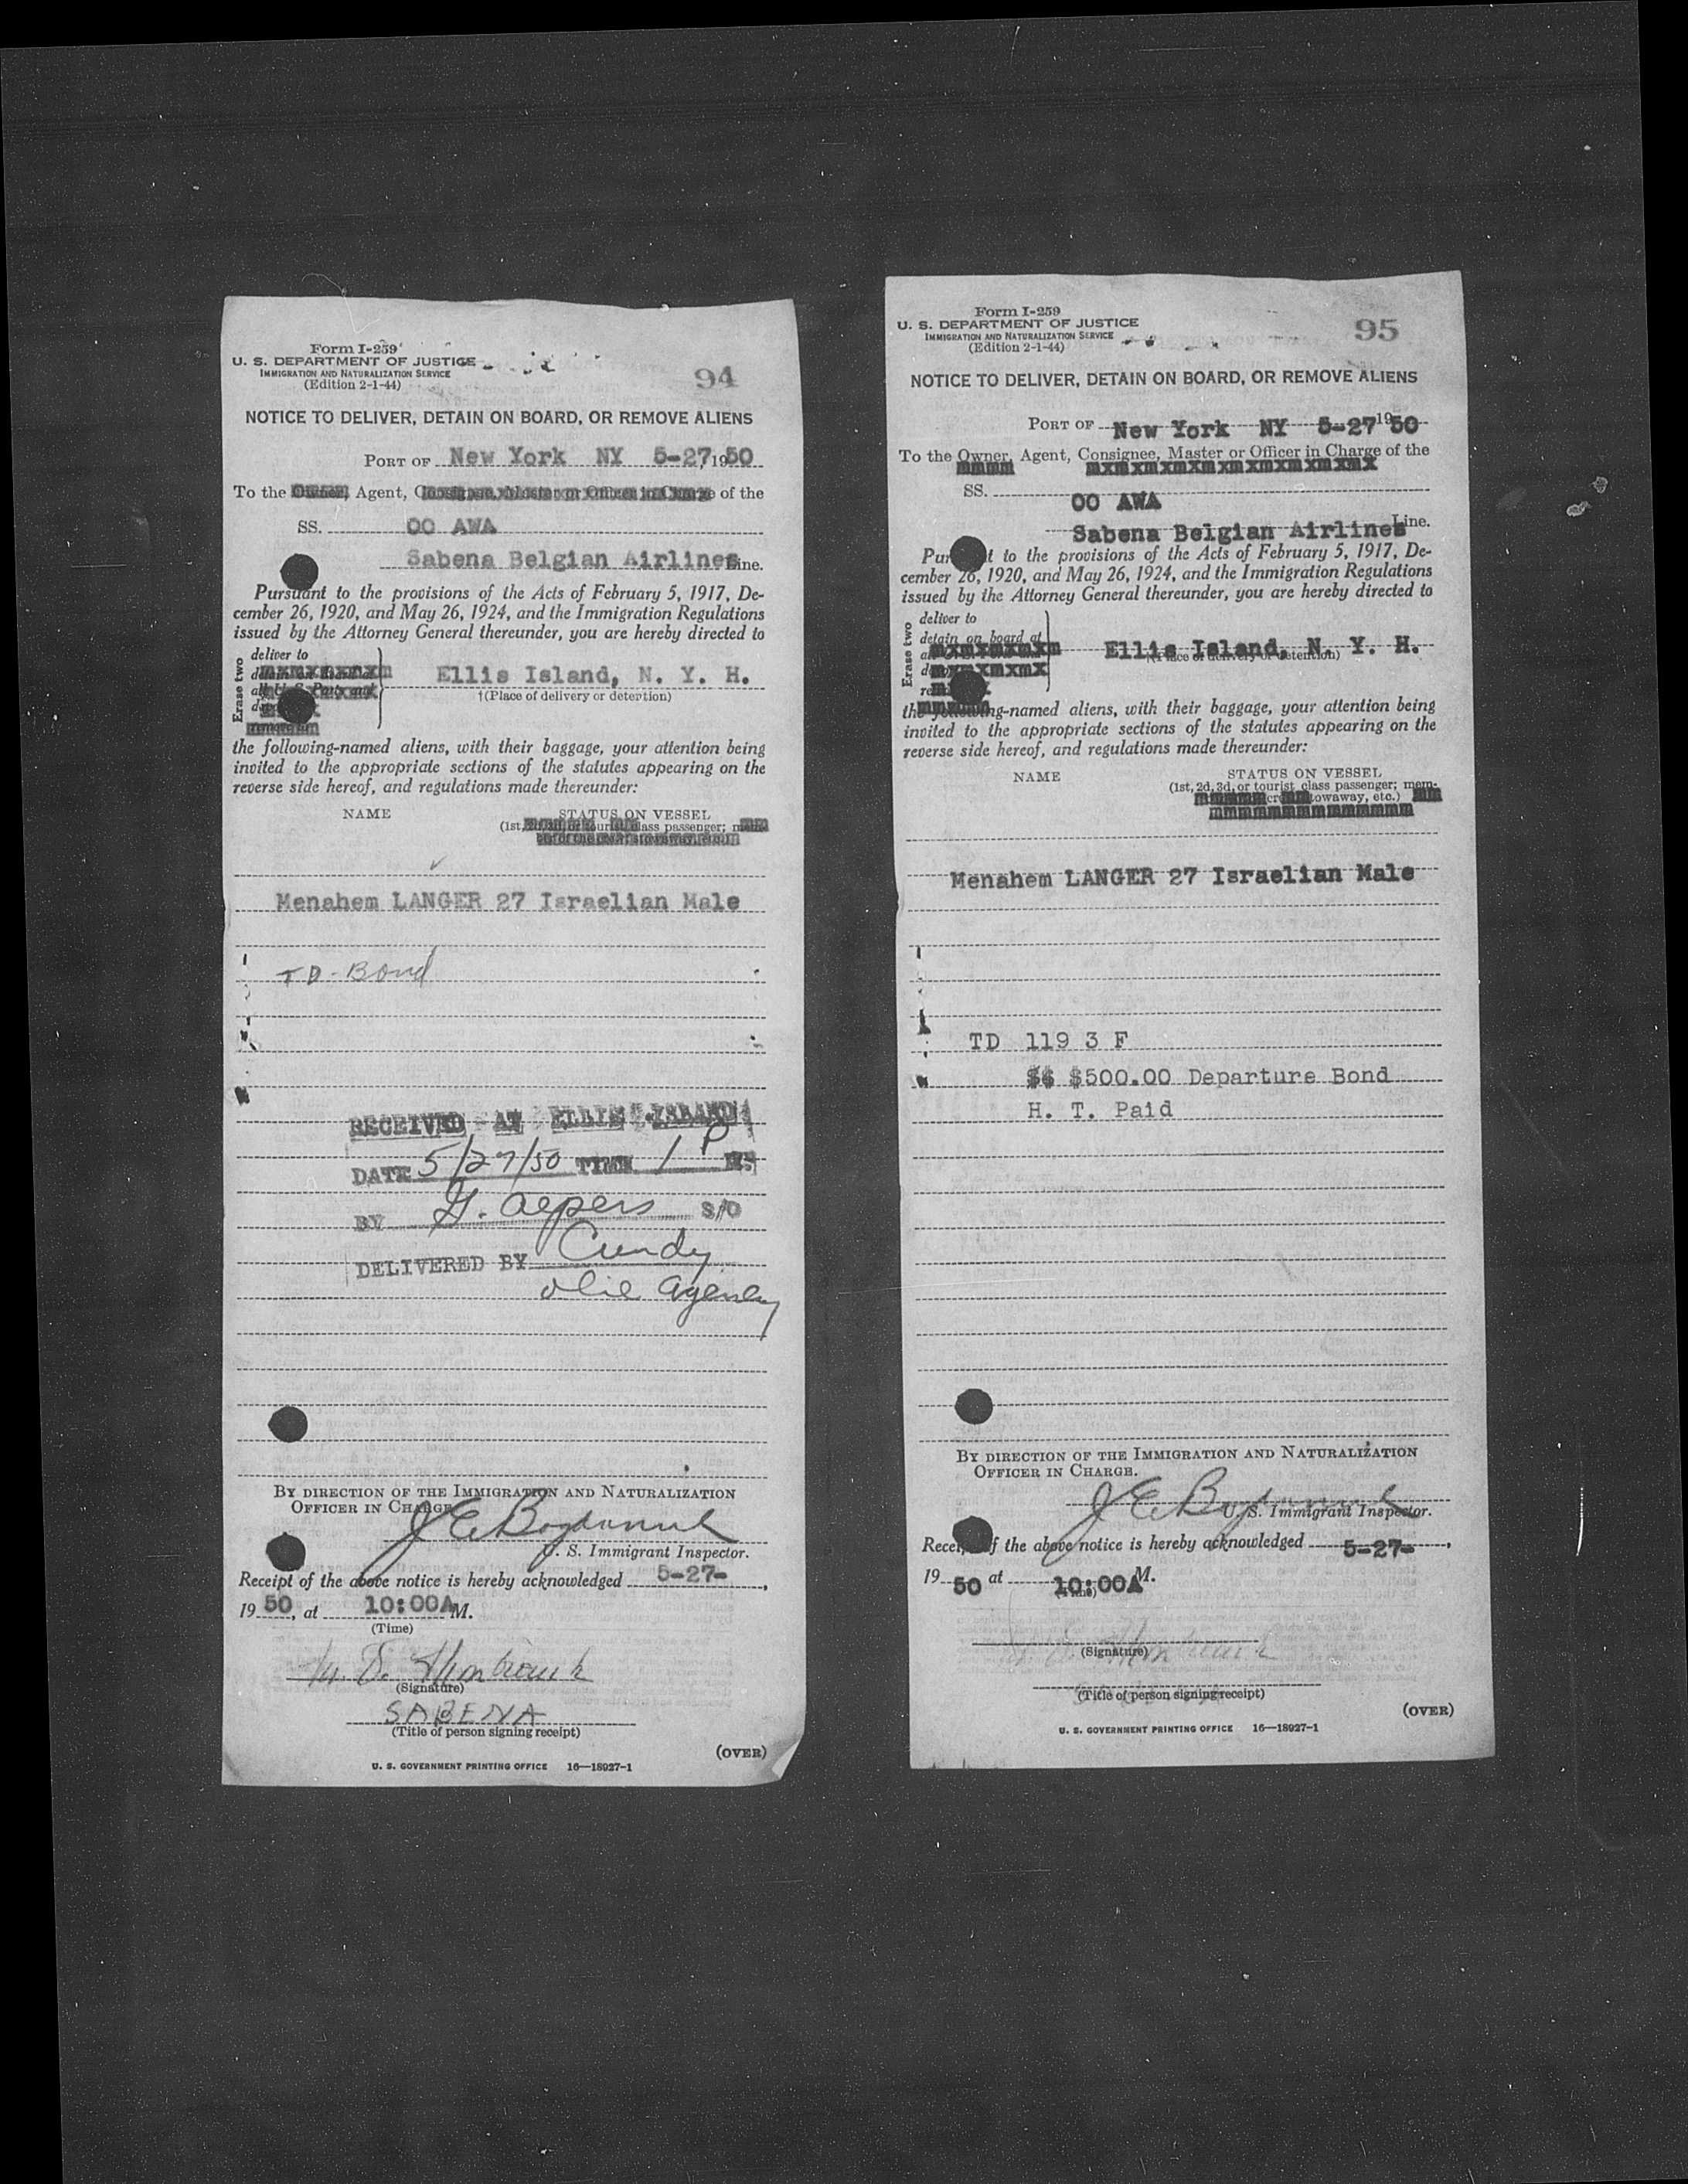 Form I-259
U. S. DEPARTMENT OF JUSTICE
IMMIGRATION AND NATURALIZATION SERVICE
(Edition 2-1-44)
94
NOTICE TO DELIVER, DETAIN ON BOARD, OR REMOVE ALIENS
PORT OF New York NY 5-27, 1950
To the Agent, of the
SS. OO AWA
Sabena Belgian Airlines Line.
Pursuant to the provisions of the Acts of February 5, 1917, De-
cember 26, 1920, and May 26, 1924, and the Immigration Regulations
issued by the Attorney General thereunder, you are hereby directed to
Erase two
deliver to
Ellis Island, N. Y. H.
†(Place of delivery or detention)
the following-named aliens, with their baggage, your attention being
invited to the appropriate sections of the statutes appearing on the
reverse side hereof, and regulations made thereunder:
NAME STATUS ON VESSEL
(1st, class passenger;
Menahem LANGER 27 Israelian Male
TD-Bond
RECEIVED AT ELLIS ISLAND
DATE 5/27/50 TIME 1 P M.
BY G. Aepers S/O
DELIVERED BY Cundy
Olie Agency
BY DIRECTION OF THE IMMIGRATION AND NATURALIZATION
OFFICER IN CHARGE.
U. S. Immigrant Inspector.
Receipt of the above notice is hereby acknowledged 5-27-,
1950, at 10:00A M.
(Time)
(Signature)
SABENA
(Title of person signing receipt)
(OVER)
U. S. GOVERNMENT PRINTING OFFICE 16—18927-1
Form I-259
U. S. DEPARTMENT OF JUSTICE
IMMIGRATION AND NATURALIZATION SERVICE
(Edition 2-1-44)
95
NOTICE TO DELIVER, DETAIN ON BOARD, OR REMOVE ALIENS
PORT OF New York NY 5-27 1950
To the Owner, Agent, Consignee, Master or Officer in Charge of the
SS.
OO AWA
Sabena Belgian Airlines Line.
to the provisions of the Acts of February 5, 1917, De-
cember 26, 1920, and May 26, 1924, and the Immigration Regulations
issued by the Attorney General thereunder, you are hereby directed to
Erase two
deliver to
detain on board at
Ellis Island, N. Y. H.
(Place of delivery or detention)
the following-named aliens, with their baggage, your attention being
invited to the appropriate sections of the statutes appearing on the
reverse side hereof, and regulations made thereunder:
NAME STATUS ON VESSEL
(1st, 2d, 3d, or tourist class passenger; mem-
stowaway, etc.)
Menahem LANGER 27 Israelian Male
TD 119 3 F
$500.00 Departure Bond
H. T. Paid
BY DIRECTION OF THE IMMIGRATION AND NATURALIZATION
OFFICER IN CHARGE.
U. S. Immigrant Inspector.
Receipt of the above notice is hereby acknowledged 5-27-,
1950 at 10:00A M.
(Time)
(Signature)
(Title of person signing receipt)
(OVER)
U. S. GOVERNMENT PRINTING OFFICE 16—18927-1